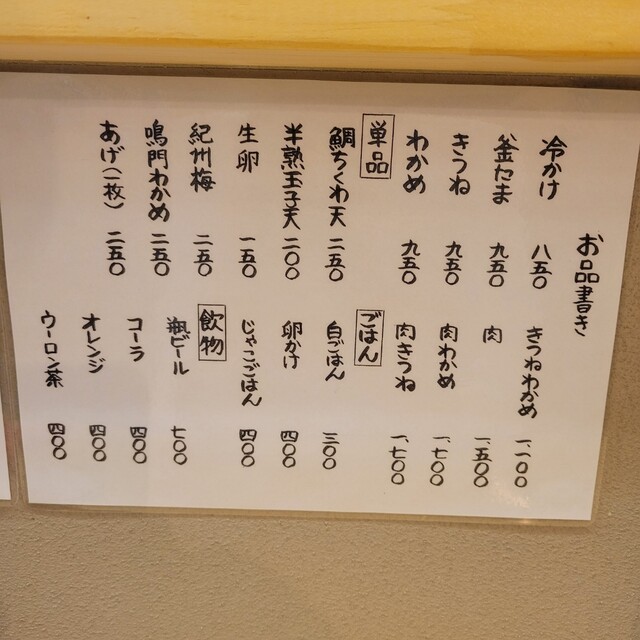 お品書き
冷かけ 八五〇
釜たま 九五〇
きつね 九五〇
わかめ 九五〇
単品
鯛ちくわ天 二五〇
半熟玉子天 二〇〇
生卵 一五〇
紀州梅 二五〇
鳴門わかめ 二五〇
あげ(二枚) 二五〇
きつねわかめ 一、一〇〇
肉 一、五〇〇
肉わかめ 一、七〇〇
肉きつね 一、七〇〇
ごはん
白ごはん 三〇〇
卵かけ 四〇〇
じゃこごはん 四〇〇
飲物
瓶ビール 七〇〇
コーラ 四〇〇
オレンジ 四〇〇
ウーロン茶 四〇〇